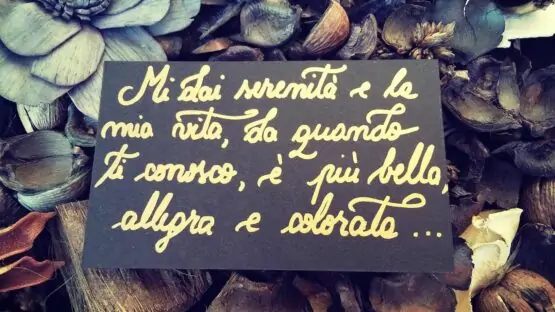 Mi dai serenità e la
mia vita, da quando
ti conosco, è più bella,
allegra e colorata ...